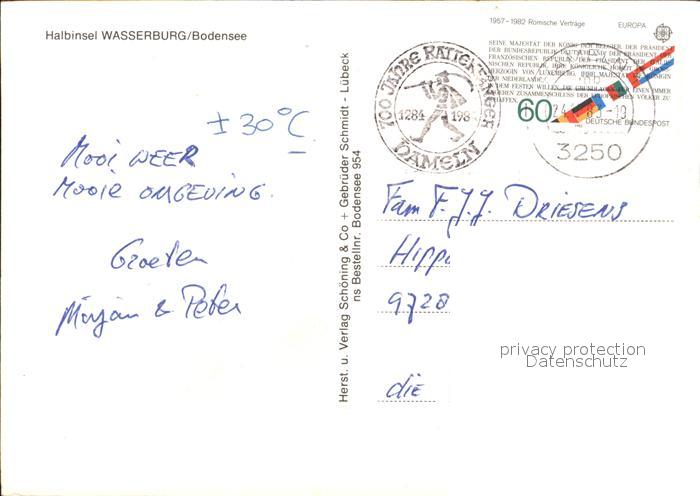 Halbinsel WASSERBURG/Bodensee
± 30°C
Mooi WEER
MOOIE OMGEVING.
Groeten
Mirjam & Peter
Herst. u. Verlag Schöning & Co + Gebrüder Schmidt - Lübeck
ns Bestellnr. Bodensee 954
700 JAHRE RATTENFÄNGER
1284 198
HAMELN
1957-1982 Römische Verträge EUROPA
SEINE MAJESTÄT DER KÖNIG DER BELGIER, DER PRÄSIDENT
DER BUNDESREPUBLIK DEUTSCHLAND, DER PRÄSIDENT DER
FRANZÖSISCHEN REPUBLIK, DER PRÄSIDENT DER ITALIE-
NISCHEN REPUBLIK, IHRE KÖNIGLICHE HOHEIT
HERZOGIN VON LUXEMBURG, IHRE MAJESTÄT DIE KÖNIGIN
DER NIEDERLANDE,
DEM FESTEN WILLEN, DIE GRUNDLAGEN FÜR EINEN IMMER
ENGEREN ZUSAMMENSCHLUSS DER EUROPÄISCHEN VÖLKER ZU
SCHAFFEN,
60
DEUTSCHE BUNDESPOST
3250
Fam F.J.J. DRIESENS
Hipp
9728
die
privacy protection
Datenschutz